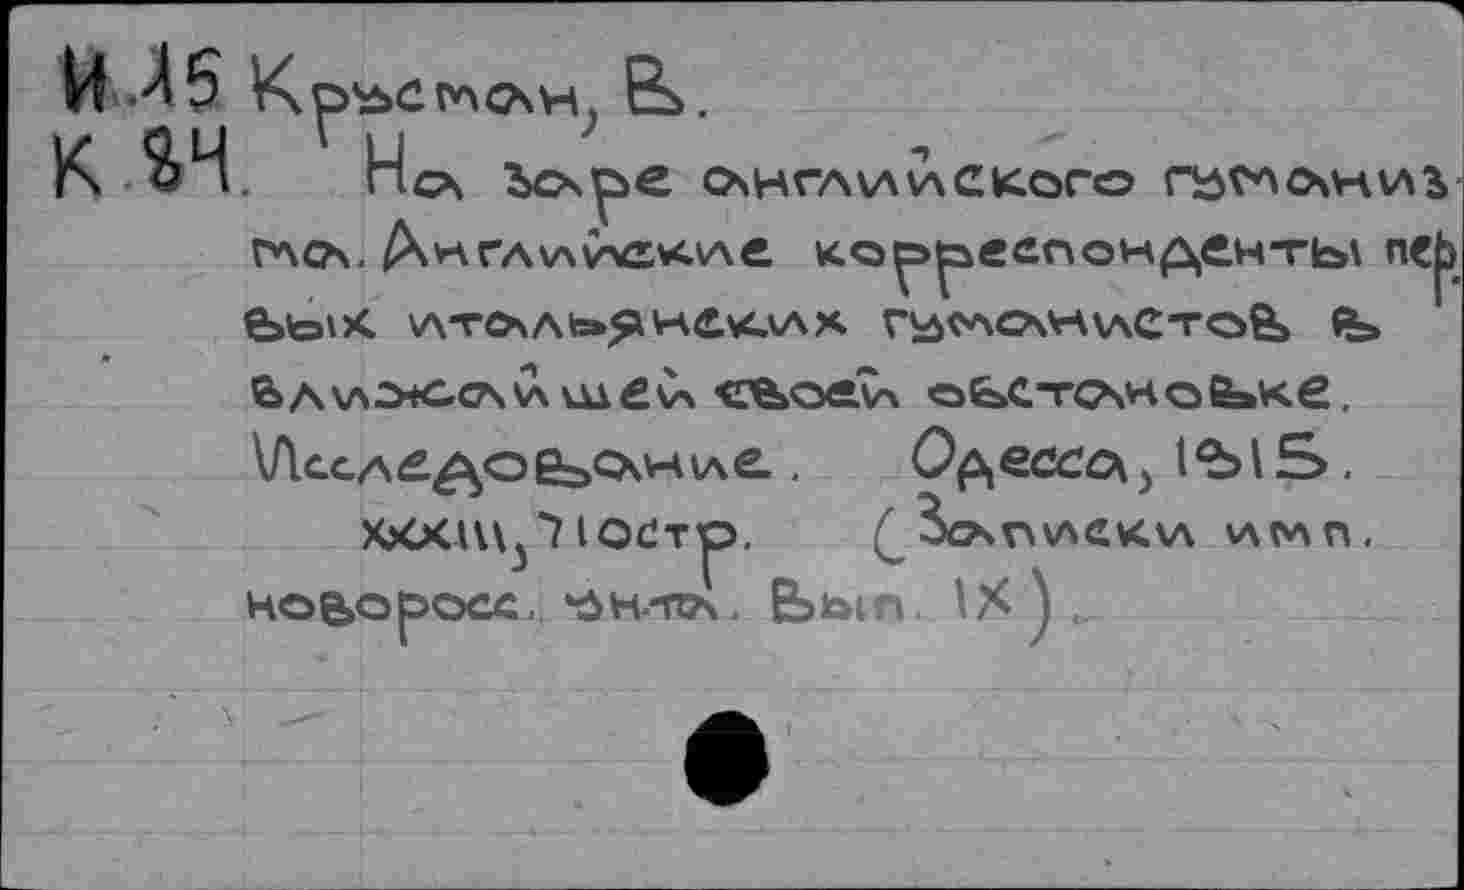 И.15 Крусман, В.
К 84. На заре английского гуманиз-
ма. Английские корреспонденты пер-
вых итальянских гуманистов в
ближайшей своей обстановке.
Исследование. Одесса, 1915.
XXXIII, 710стр. (Записки имп.
новоросс. ун-та. Вып. IX).